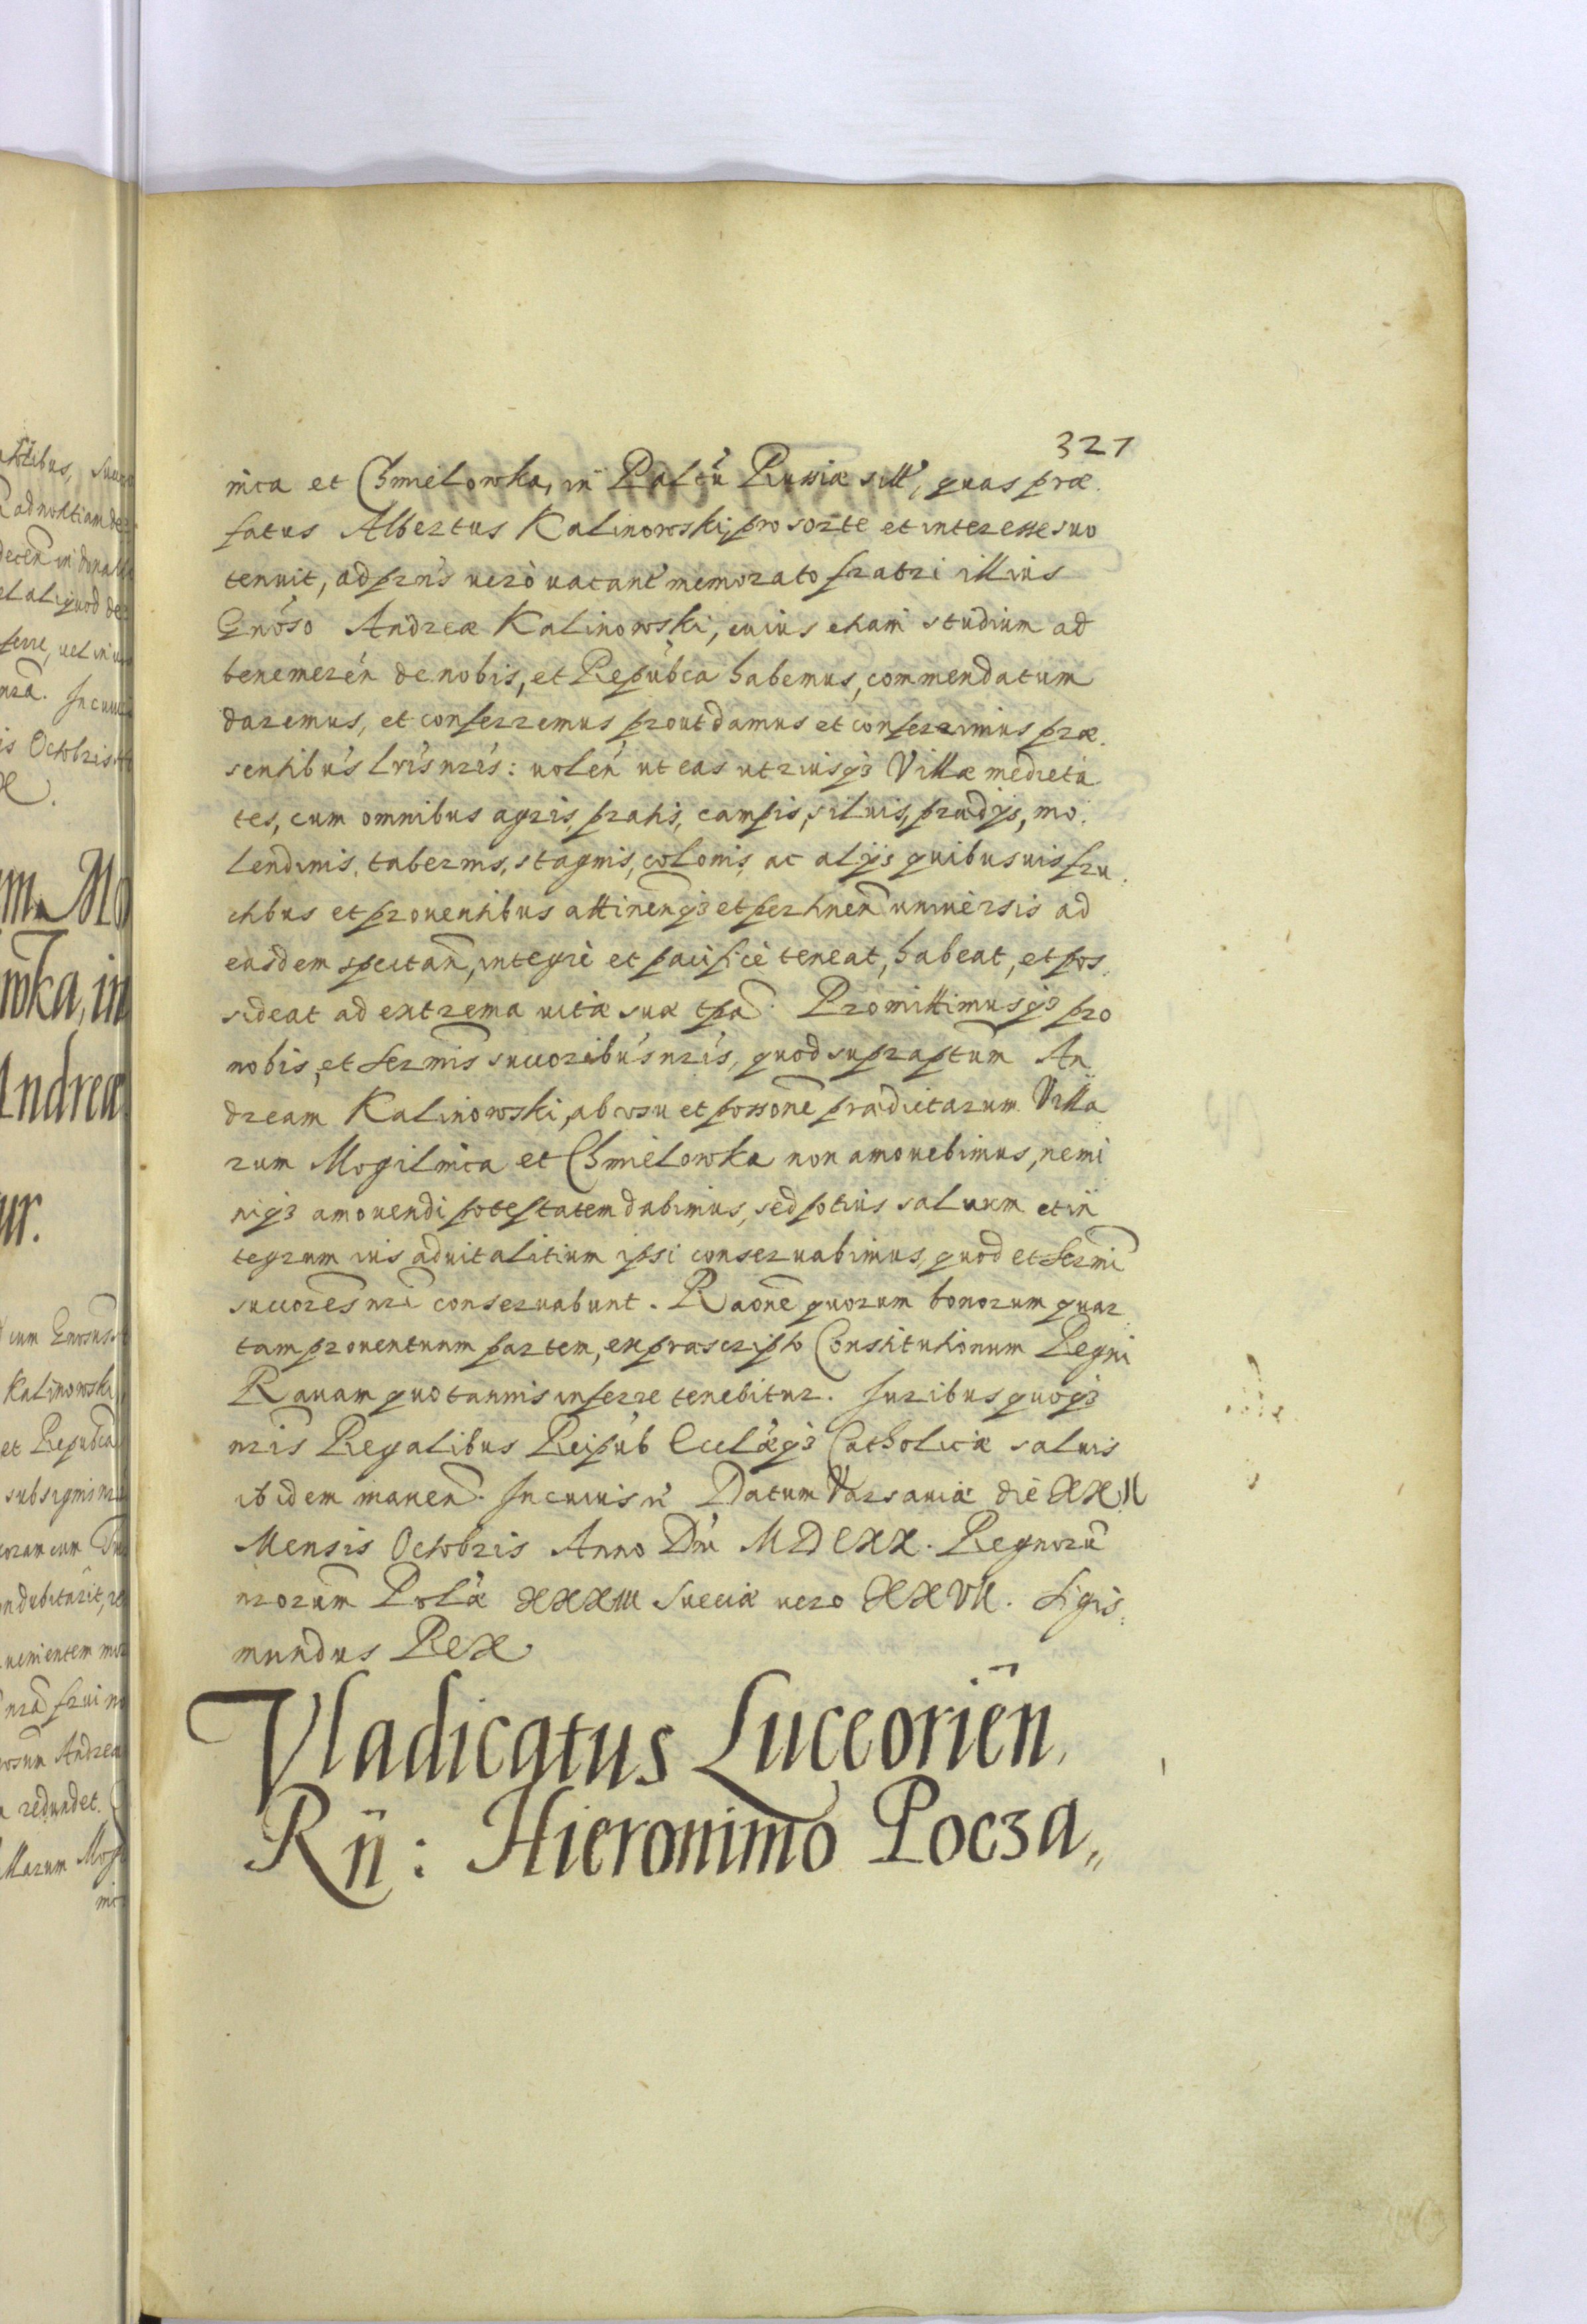 327
nica et Chmielowka, in Paltũ Russiæ sitt, quas præ
fatus Albertus Kalinowski, pro sorte et interesse suo
tenuit, ad prn's verò vacañ memorato fratri illius
Gnóso Andreæ Kalinowski, cuius etiam studium ad
benemerén de nobis, et Repúbca habemus, commendatum
daremus, et conferremus prout damus et conferrimus præ
sentibús Lrís nrís: volén ut eas utriusq3 Villæ medieta
tes, cum omnibus agris, pratis, campis, siluis, prædijs, mo
lendinis, tabernis, stagnis, colonis, ac alijs quibusuis fru
ctibus et prouentibus attineñq3 et pertineñ uniuersis ad
easdem spectañ, integrè et pacificè teneat, habeat, et pos
sideat ad extrema vitæ suæ tpa. Promittimusq3 pro
nobis, et Sermis succoribús nrís, quod supraptum An
dream Kalinowski, ab vsu et possone prædictarum Villa
rum Mogilnica et Chmielowka non amouebimus, nemi
niq3 amouendi potestatem dabimus, sed potius saluum et in
tegrum ius aduitalitium ipsi conseruabimus, quod et Sermi
succores nri conseruabunt. Raone quorum bonorum quar
tam prouentuum partem, ex præscripto Constitutionum Regni
Rauam quotannis inferre tenebitur. Juribus quoq3
nris Regalibus Reipúb Ecclæq3 Catholicæ saluis
ibidem maneñ. In cuius r̃ Datum Varsauiæ die XXII
Mensis Octobris Anno Dni MDCXX. Regnorũ
nrorum Polæ XXXIII Sueciæ vero XXVII. Sigis
mundus Rex
Vladicatus Luceorien̄,
Rñ: Hieronimo Pocza,,